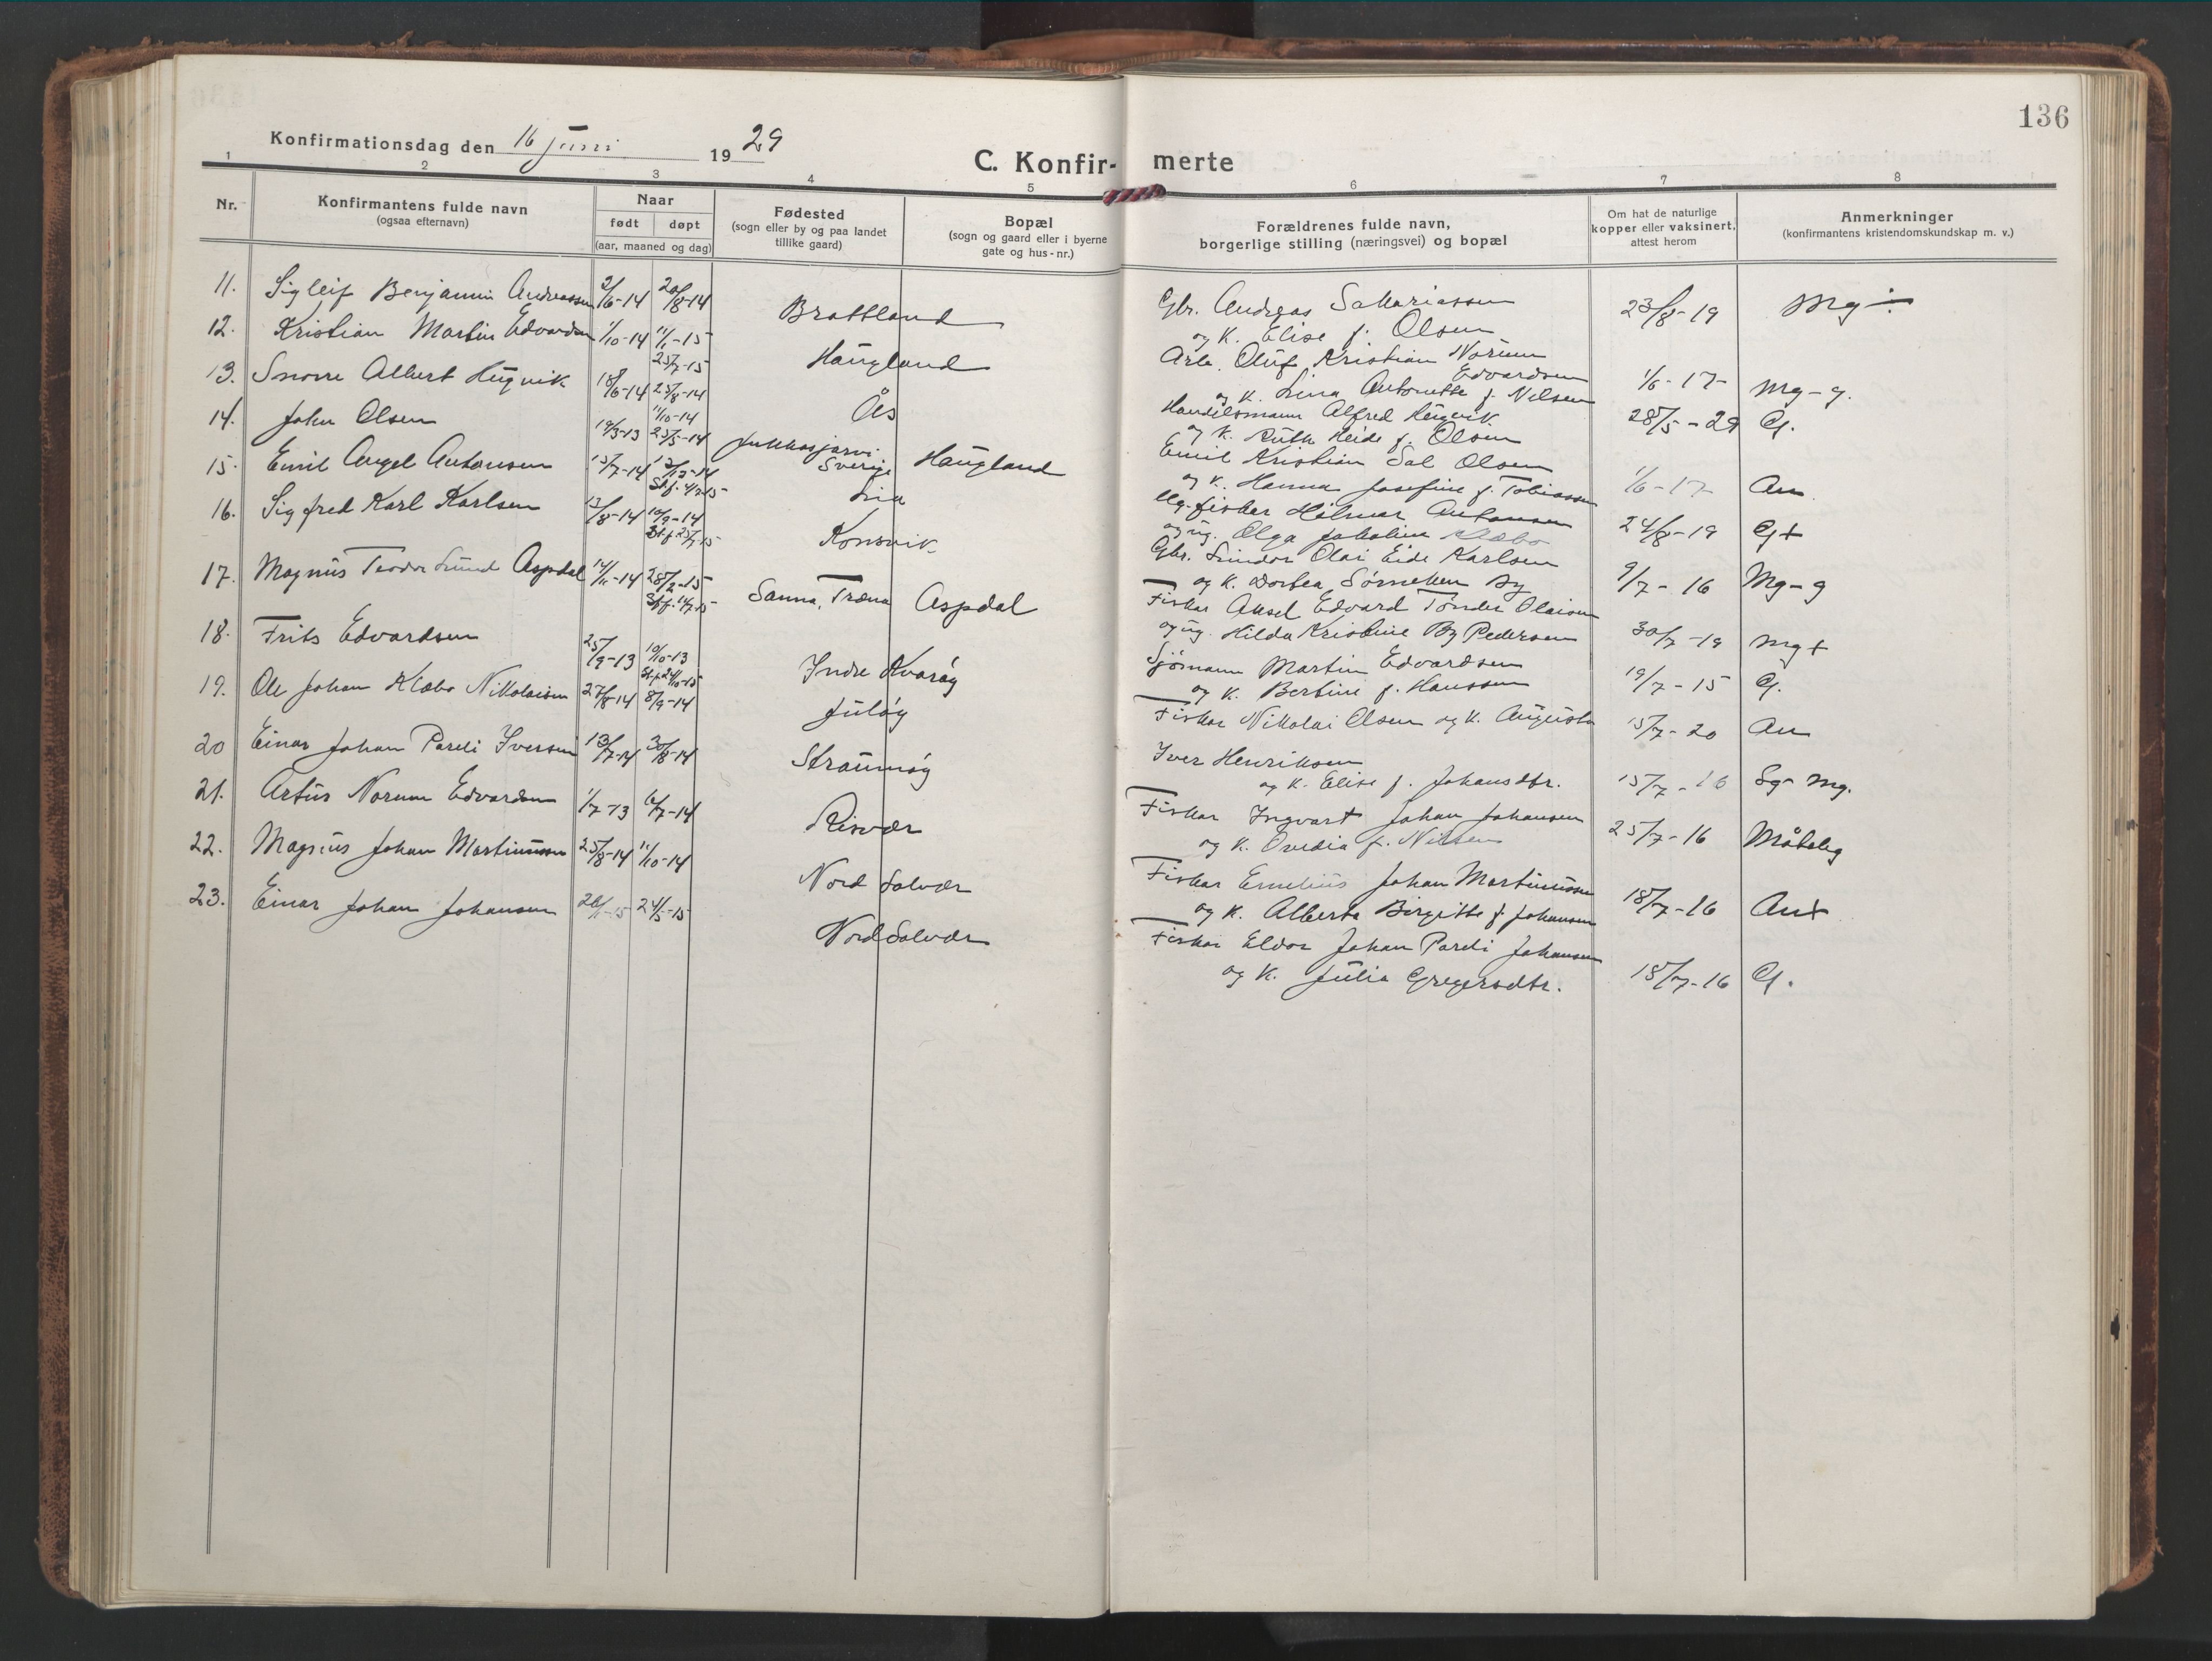 136
Konfirmationsdag den 16 Juni 1929
C. Konfirmerte
1 2 3 4 5 6 7 8
Nr.
Konfirmantens fulde navn
(ogsaa efternavn)
Naar
født døpt
(aar, maaned og dag)
Fødested
(sogn eller by og paa landet
tillike gaard)
Bopæl
(sogn og gaard eller i byerne
gate og hus-nr.)
Forældrenes fulde navn,
borgerlige stilling (næringsvei) og bopæl
Om hat de naturlige
kopper eller vaksinert,
attest herom
Anmerkninger
(konfirmantens kristendomskundskap m. v.)
11. Sigleif Benjamin Andreassen 2/6-14 20/8-14 Brattland
Gbr. Andreas Sakariassen
og K. Elise f. Olsen
23/8-19 Mg ÷
12. Kristian Martin Edvardsen 1/10-14 11/1-15
25/7-15
Haugland
Arb. Oluf Kristian Norum
Edvardsen
og K. Lina Antonette f. Nilsen
1/6-17 Mg-g.
13. Snorre Albert Hugvik 18/6-14 25/8-14
11/10-14
Ås
Handelsmann Alfred Hugvik
og K. Ruth Heide f. Olsen
28/5-29 G.
14. John Olsen 19/3-13 25/5-14
Jukkasjarvi
Sverige
Haugland
Emil Kristian Sal Olsen
og K. Hanna Josefine f. Tobiassen
1/6-17 An
15. Emil Angel Antonsen 15/7-14
St.f. 4/7-15
Lia
Ug. fisker Hilmar Antonsen
og ug. Olga Jakobine Klæbo
24/8-19 G+
16. Sigfred Karl Karlsen 13/8-14 10/9-14
St.f. 25/7-15
Konsvik
Gbr. Sindor Olai Eide Karlsen
og K. Dortea Sørnehen By
9/7-16 Mg-g
17. Magnus Teodor Lund Aspdal 14/11-14 28/2-15
Stf. 14/7-15
Sanna, Træna Aspdal
Fisker Aksel Edvard Tønder Olaisen
og ug. Hilda Kristine By Pedersen
30/7-19 Mg+
18. Frits Edvardsen 25/9-13 10/10-13
St.f. 24/10-15
Indre Kvarøy
Sjømann Martin Edvardsen
og K. Bertine f. Hanssen
19/7-15 G.
19. Ole Johan Klæbo Nikolaisen 27/8-14 8/9-14
Juløy
Fisker Nikolai Olsen og K. Augusta
15/7-20 An
20 Einar Johan Pareli Iversen 13/7-14 30/8-14
Straumøy
Iver Henriksen
og K. Elise f. Johansdtr.
15/7-16 Sg-Mg.
21. Artur Norum Edvardsen 1/7-13 6/7-14
Risvær
Fisker Ingvart Johan Johansen
og K. Ovedia f. Nilsen
25/7-16 Måtelig
22. Magnus Johan Martinussen 25/8-14 11/10-14
Nord Solvær
Fisker Ernelius Johan Martinussen
og K. Alberta Birgitte f. Johansen
18/7-16 An+
23. Einar Johan Johansen 26/1-15 24/5-15
Nord Solvær
Fisker Eldor Johan Pareli Johansen
og K. Julia Gregersdtr.
18/7-16 G.